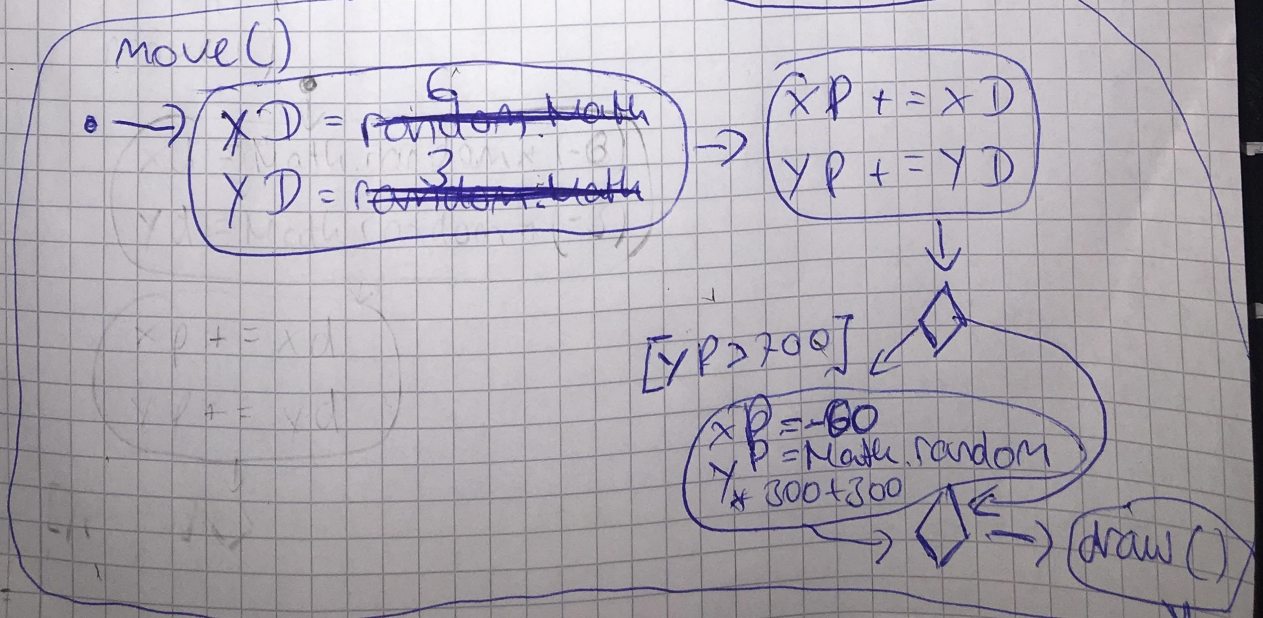 move()
XD = 6 random.Math
YD = 3 random.Math
XP += XD
YP += YD
[YP>700]
XP=-60
YP=Math.random
* 300+300
draw()